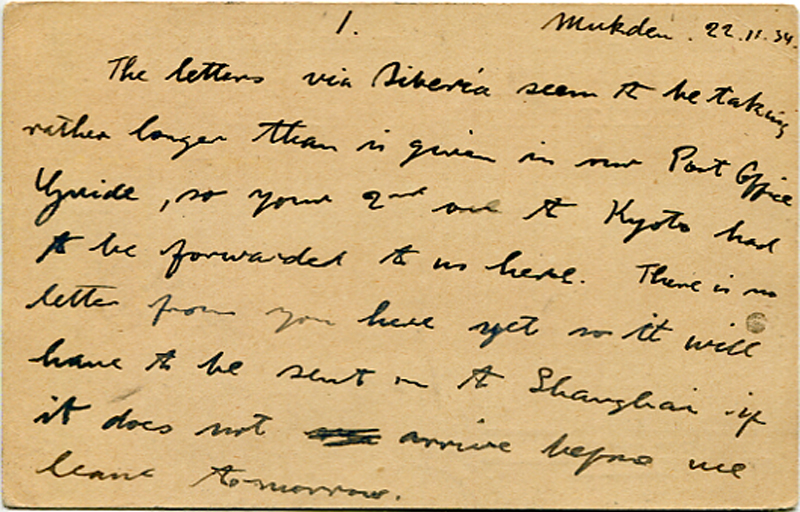 1.
Mukden. 22.11.34.
The letters via Siberia seem to be taking
rather longer than is given in our Post Office
Guide, so your 2nd one to Kyoto had
to be forwarded to us here. There is no
letter from you here yet so it will
have to be sent on to Shanghai if
it does not arrive before we
leave tomorrow.